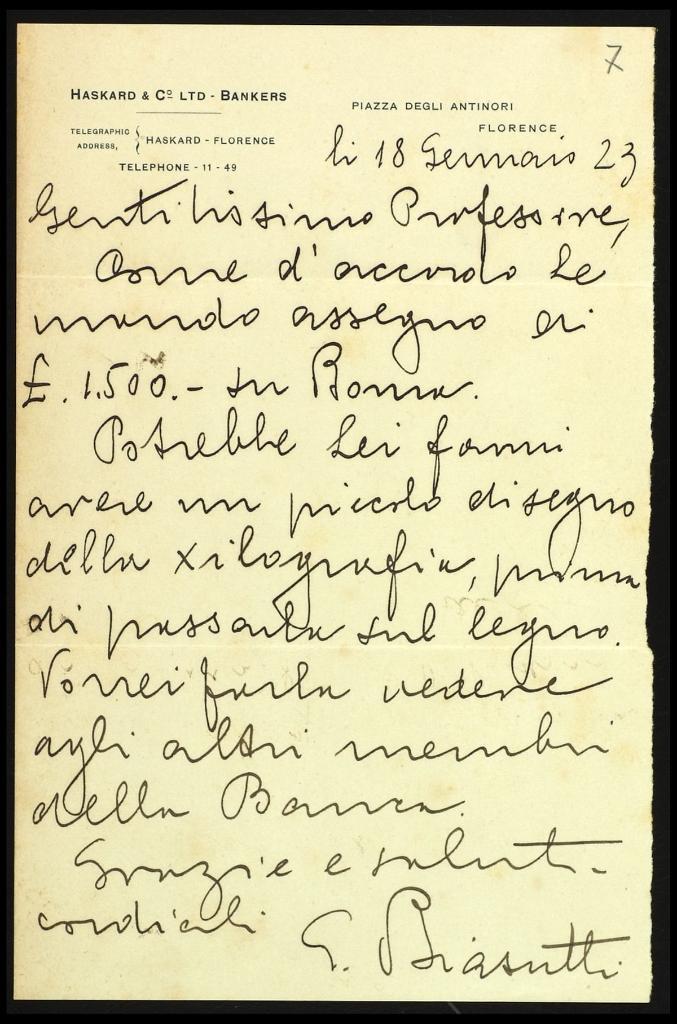 7
HASKARD & Cº LTD - BANKERS
PIAZZA DEGLI ANTINORI
FLORENCE
TELEGRAPHIC ADDRESS, { HASKARD - FLORENCE
TELEPHONE - 11 - 49
li 18 Gennaio 23
Gentilissimo Professore,
Come d'accordo Le
mando assegno di
£. 1.500.- su Roma.
Potrebbe Lei farmi
avere un piccolo disegno
della xilografia, prima
di passarla sul legno.
Vorrei farla vedere
agli altri membri
della Banca.
Grazie e saluti
cordiali
G. Biasutti